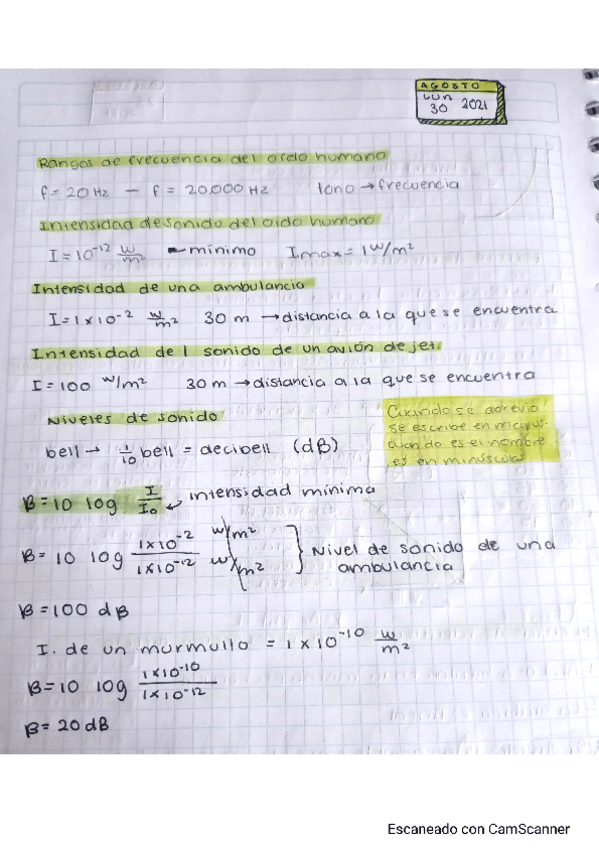 AGOSTO
LUN
30 2021
Rangos de frecuencia del oído humano
f = 20 Hz — f = 20.000 Hz tono → frecuencia
Intensidad de sonido del oido humano
I = 10⁻¹² w/m² mínimo Imax = 1 w/m²
Intensidad de una ambulancia
I = 1 x 10⁻² w/m² 30 m → distancia a la que se encuentra
Intensidad del sonido de un avión de jet.
I = 100 w/m² 30 m → distancia a la que se encuentra
Niveles de sonido
Cuando se abrevia
se escribe en mayus.
cuando es el nombre
es en minúsculas
bell → 1/10 bell = decibell (dB)
B = 10 log I/I₀ intensidad mínima
B = 10 log 1x10⁻² w/m² / 1x10⁻¹² w/m² } Nivel de sonido de una
ambulancia
B = 100 dB
I. de un murmullo = 1 x 10⁻¹⁰ w/m²
B = 10 log 1x10⁻¹⁰ / 1x10⁻¹²
B = 20 dB
Escaneado con CamScanner